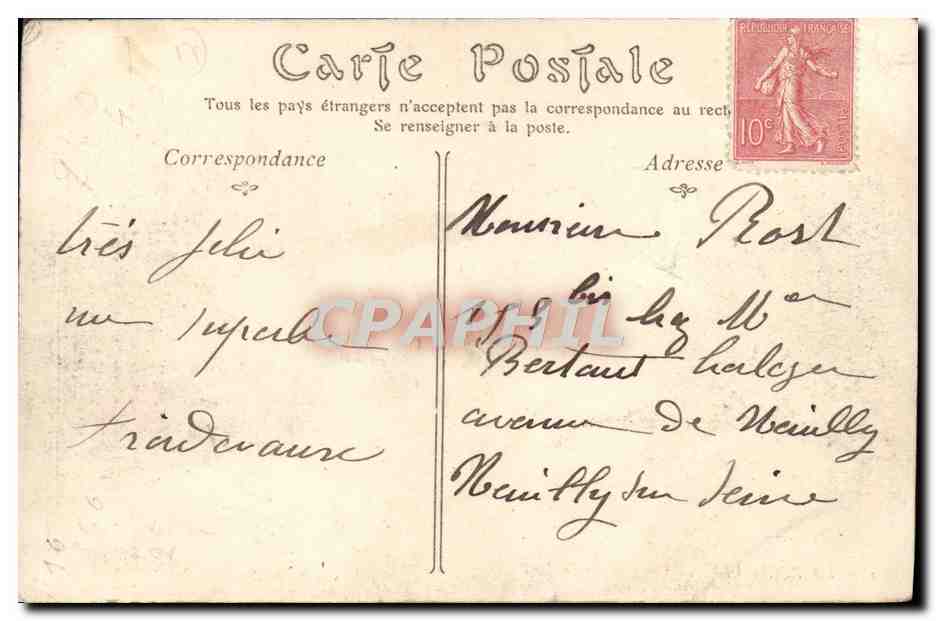 Carte Postale
Tous les pays étrangers n'acceptent pas la correspondance au rect
Se renseigner à la poste.
RÉPUBLIQUE FRANÇAISE
10c
POSTES
Correspondance
Adresse
très jolie
superbe
CPAPHIL
Monsieur Prost
bis
Bertaut horloger
avenue de Neuilly
Neuilly sur Seine